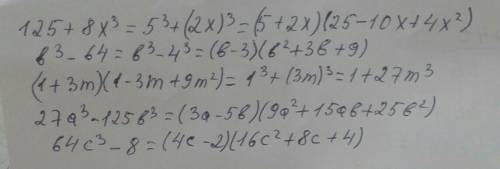 125+8x³=5³+(2x)³=(5+2x)(25-10x+4x²)
в³-64=в³-4³=(в-3)(в²+3в+9)
(1+3m)(1-3m+9m²)=1³+(3m)³=1+27m³
27a³-125в³=(3a-5в)(9a²+15aв+25в²)
64c³-8=(4c-2)(16c²+8c+4)